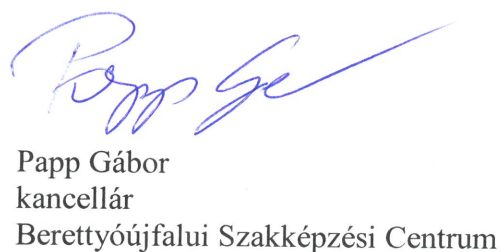 Papp Gábor
kancellár
Berettyóújfalui Szakképzési Centrum